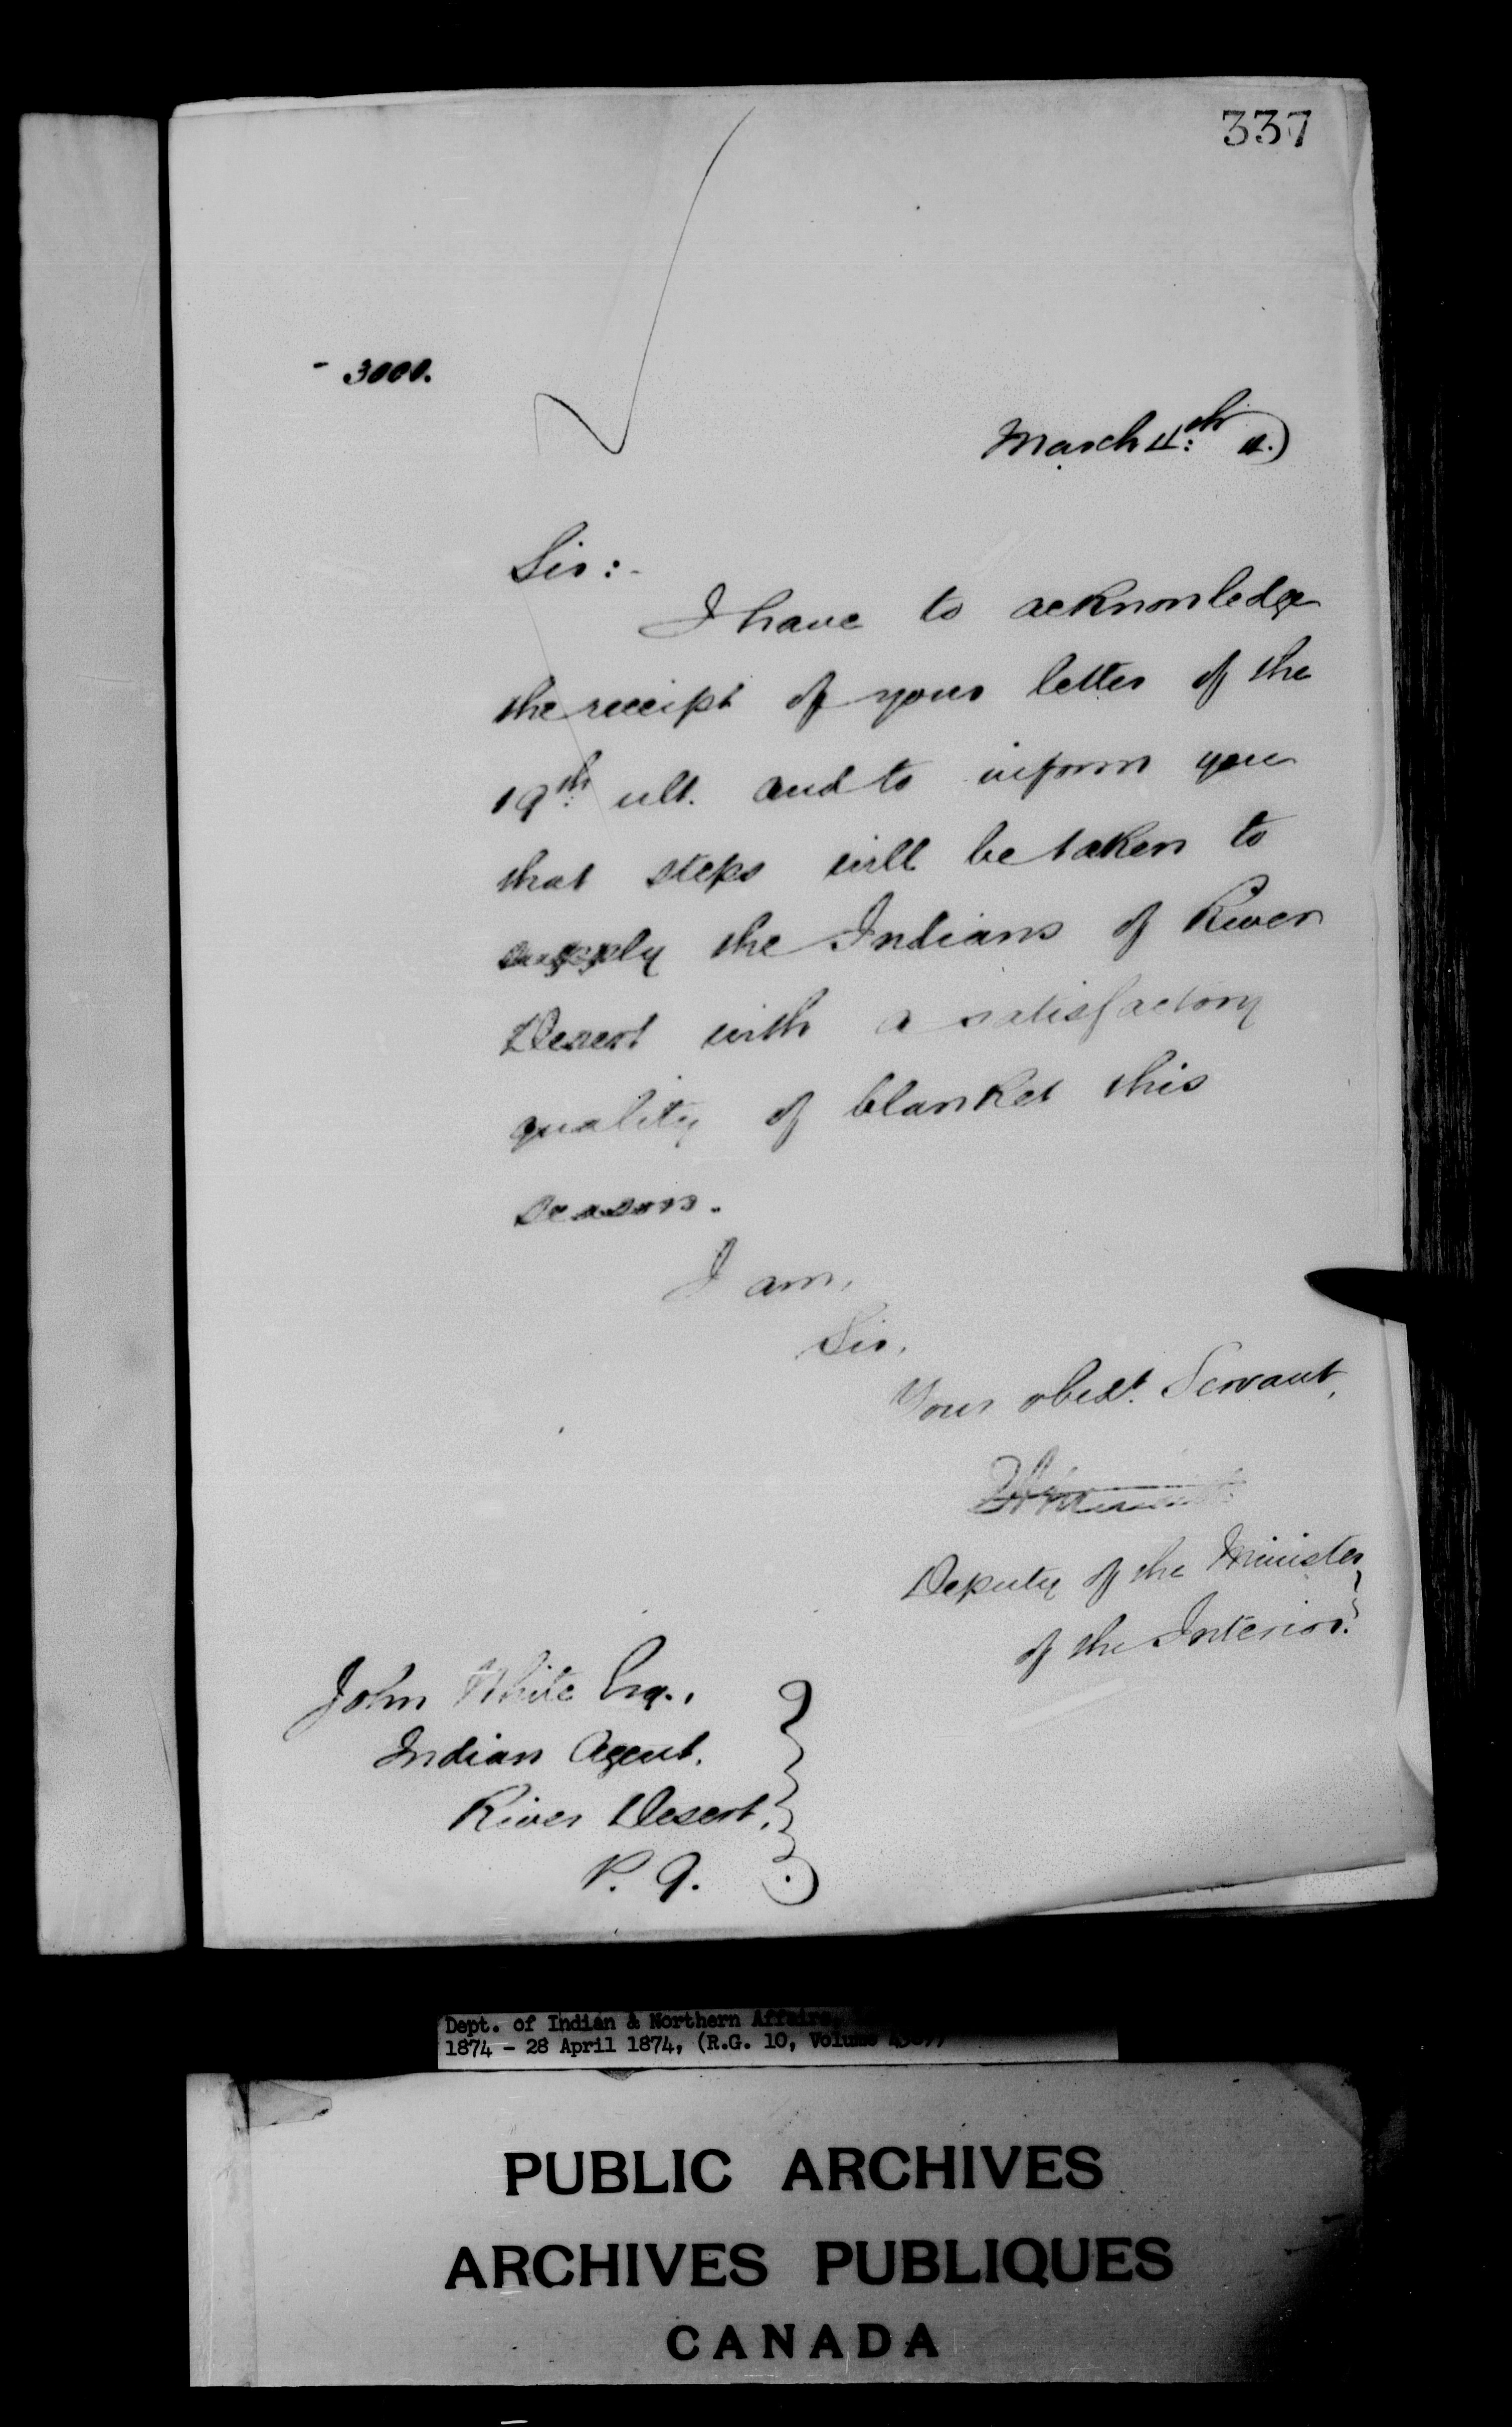 337
- 3000.
March 4:th 4.)
Sir:-
I have to acknowledge
the receipt of your letter of the
19th ult. and to inform you
that steps will be taken to
supply the Indians of River
Desert with a satisfactory
quality of blanket this
season.
I am,
Sir,
Your obedt. Servant,
Deputy of the Minister
of the Interior.
John White Esq.,
Indian Agent,
River Desert,
P. Q.
Dept. of Indian & Northern Affairs,
1874 - 28 April 1874, (R.G. 10, Volume
PUBLIC ARCHIVES
ARCHIVES PUBLIQUES
CANADA